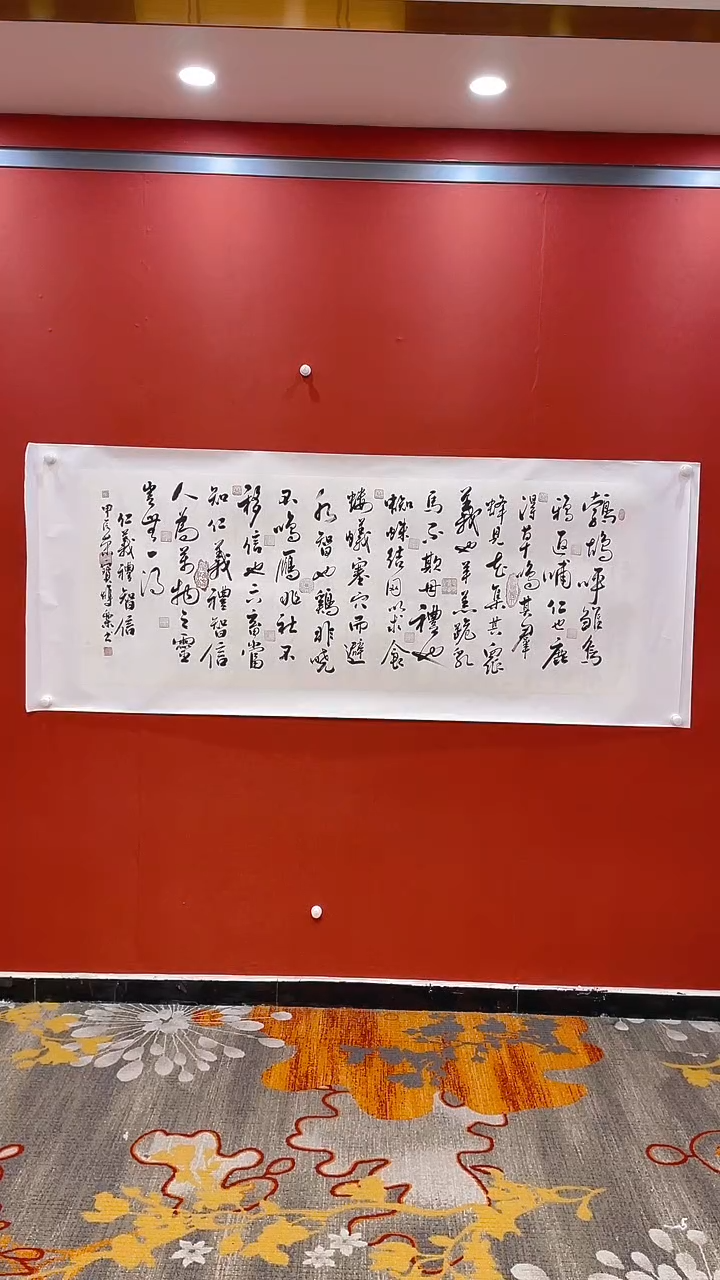 鵓鴣呼雛烏
鴉返哺仁也鹿
得草鳴其羣
蜂見花集其眾
義也羊羔跪乳
馬不欺母禮也
蜘蛛結网以求食
螻蟻塞穴而避
水智也鷄非曉
不鳴雁非社不
移信也六畜當
知仁義禮智信
人為萬物之靈
豈無一得
仁義禮智信
甲辰 書